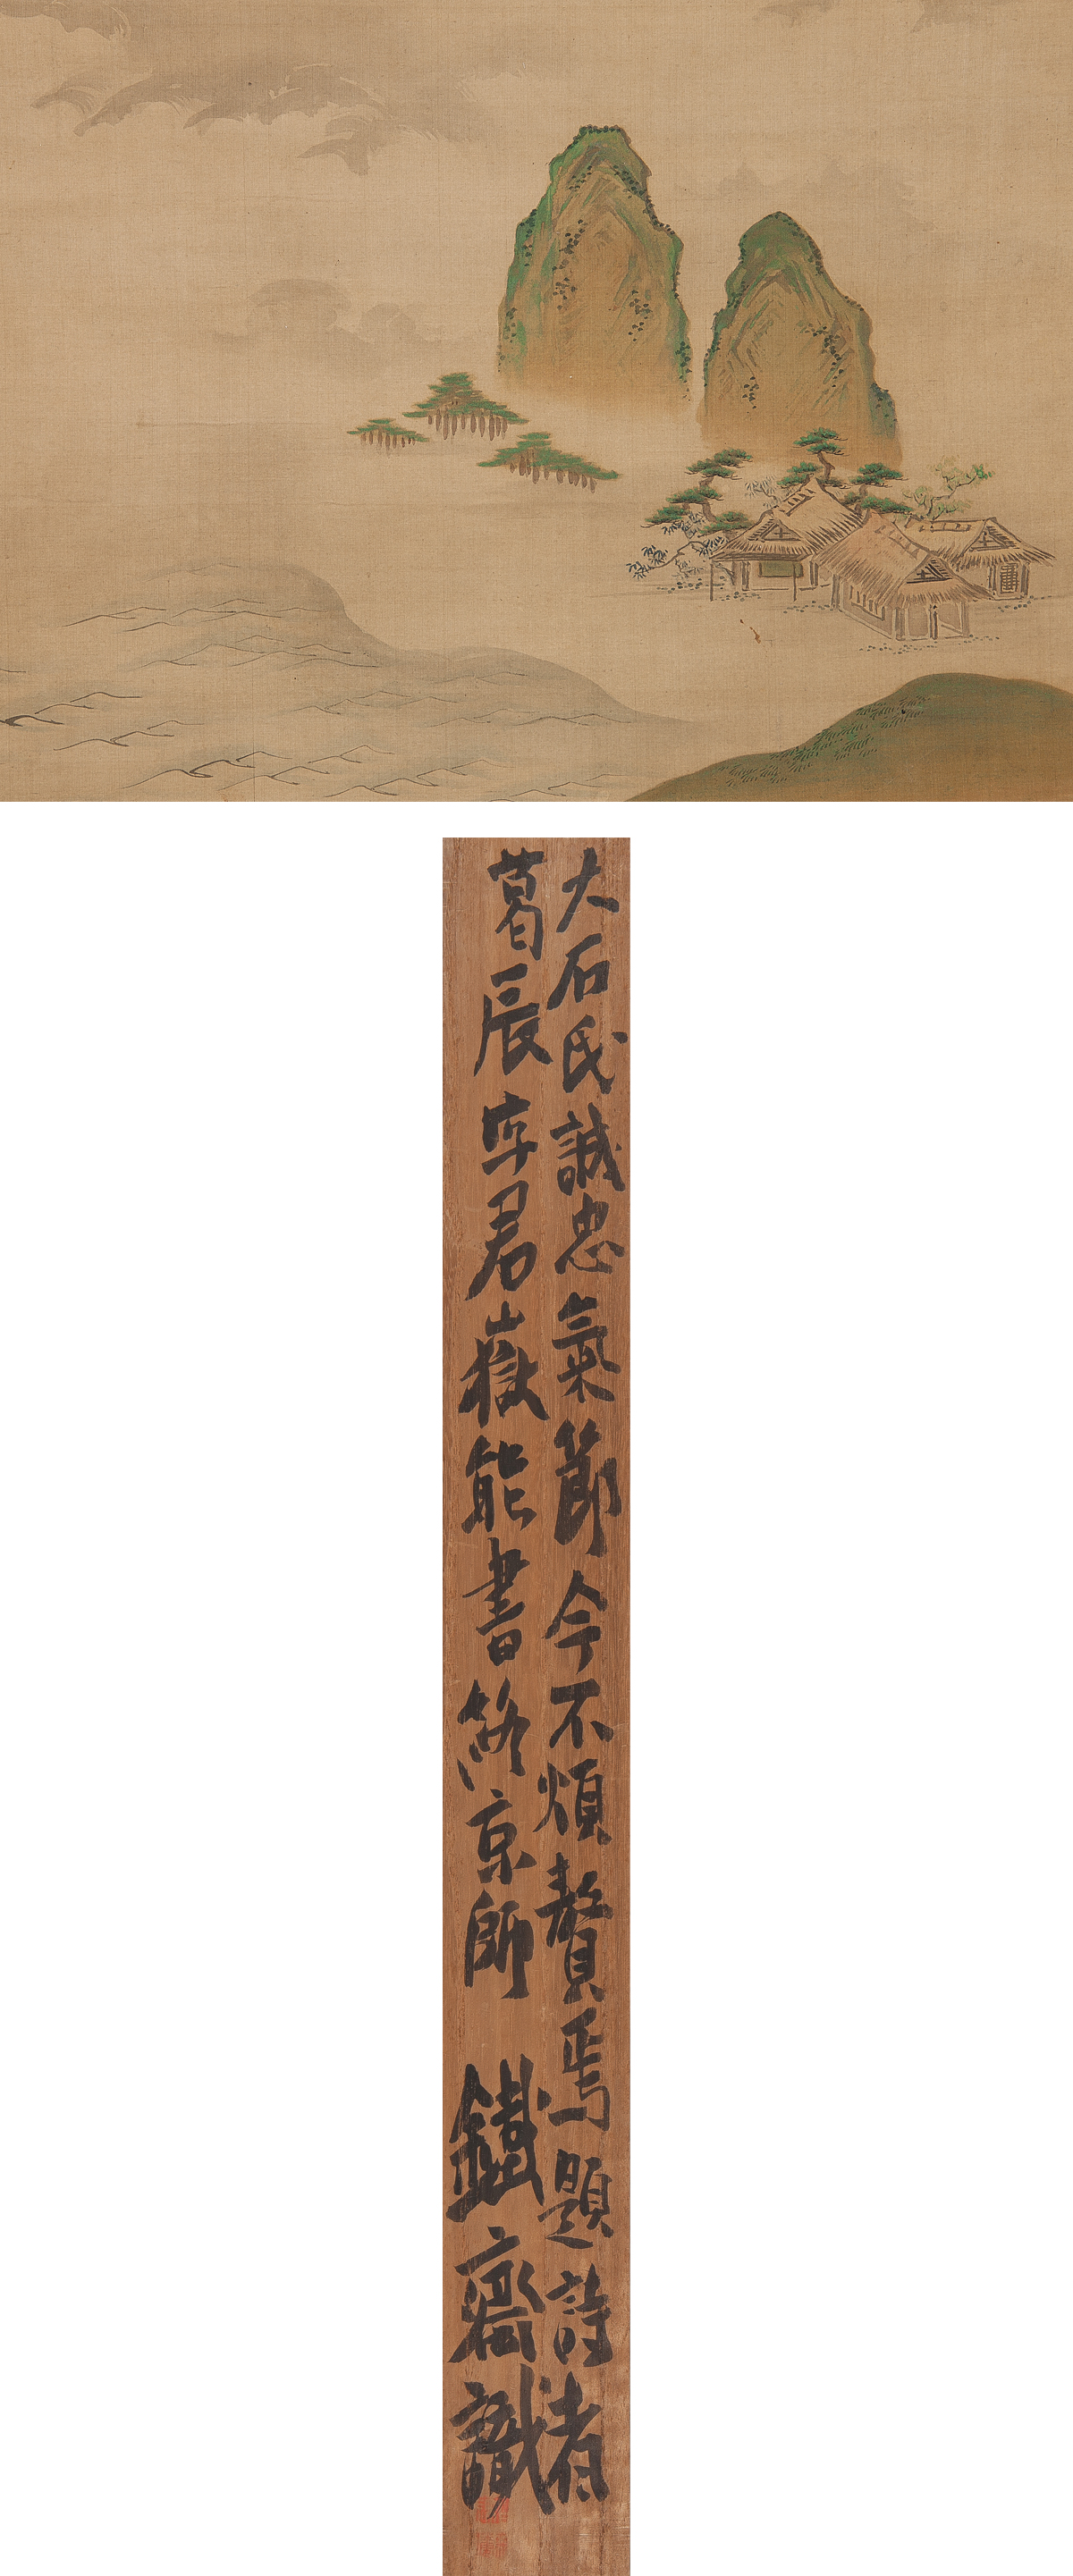 大石氏誠忠氣節今不煩贅焉題詩者
葛辰字君嶽能書終京師 鐵齋識